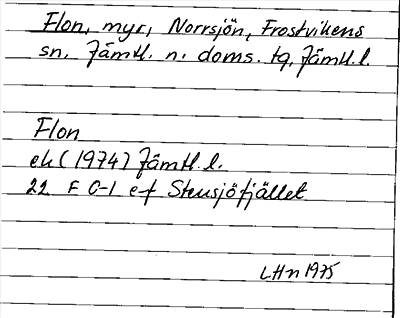 Flon, myr, Norrsjön, Frostvikens
sn, Jämtl. n. doms. tg, Jämtl. l.
Flon
ek (1974) Jämtl. l.
22 F 0-1 e-f Stensjöfjället
LHn 1975